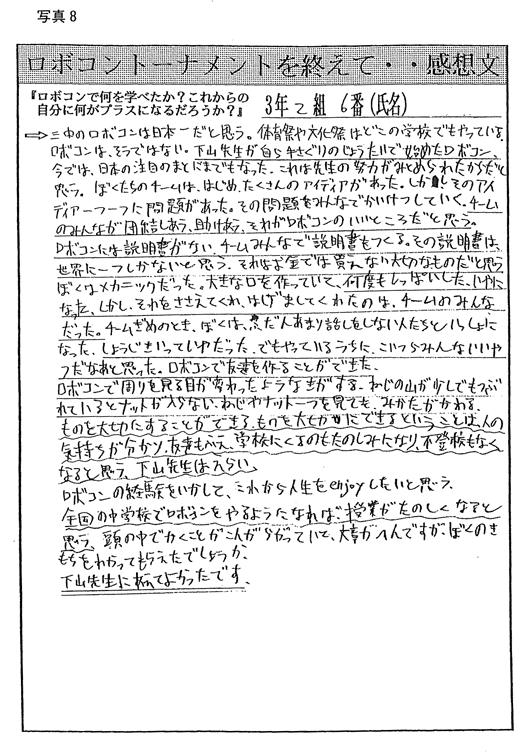 写真8
ロボコントーナメントを終えて・・感想文
『ロボコンで何を学べたか?これからの
自分に何がプラスになるだろうか?』
3年2組 6番(氏名)
三中のロボコンは日本一だと思う。体育祭や文化祭はどこの学校でもやっている。
ロボコンは、そうではない。下山先生が自ら手さぐりのじょうたいで始めたロボコン、
今では、日本の注目のまとにまでもなった。これは先生の努力がみとめられたからだと
思う。ぼくたちのチームは、はじめ、たくさんのアイディアがあった。しかしそのアイ
ディア一つ一つに問題があった。その問題をみんなでかいけつしていく。チーム
のみんなが団結しあう、助けあう、それがロボコンのいいところだと思う。
ロボコンには説明書がない、チームみんなで説明書をつくる。その説明書は、
世界に一つしかないと思う。それはお金では買えない大切なものだと思う。
ぼくはメカニックだった。大きな口を作っていて、何度もしっぱいした、いやに
なった、しかし、それをささえてくれ、はげましてくれたのは、チームのみんな
だった。チームぎめのとき、ぼくは、ふだんあまり話しをしない人たちといっしょに
なった、しょうじきいっていやだった、でもやっているうちに、こいつらみんないいや
つだなあと思った。ロボコンで友達を作ることができた。
ロボコンで周りを見る目が変わったようなきがする。ねじの山が少しでもつぶ
れているとナットが入らない、ねじやナット一つを見ても、みかたがかわる。
ものを大切にすることができる。ものを大切にできるということは、人の
気持ちが分かり、友達もふえ、学校にくるのもたのしみになり、不登校もなく
なると思う、下山先生はえらい。
ロボコンの経験をいかして、これから人生をenjoyしたいと思う。
全国の中学校でロボコンをやるようになれば、授業がたのしくなると
思う、頭の中でかくことがこんがらがっていて、文章がへんですが、ぼくのき
もちをわかってもらえたでしょうか、
下山先生に